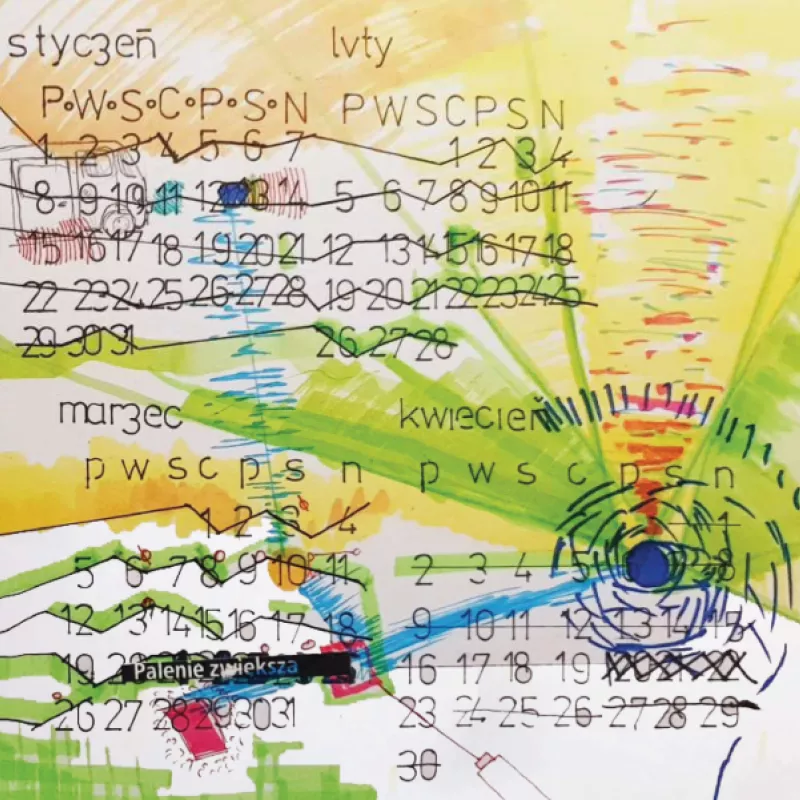 styczeń lvty
P•W•S•C•P•S•N P W S C P S N
1 2 3 4 5 6 7 1 2 3 4
8 9 10 11 12 13 14 5 6 7 8 9 10 11
15 16 17 18 19 20 21 12 13 14 15 16 17 18
22 23 24 25 26 27 28 19 20 21 22 23 24 25
29 30 31 26 27 28
marzec kwiecień
p w s c p s n p w s c p s n
1 2 3 4 1
5 6 7 8 9 10 11 2 3 4 5 8
12 13 14 15 16 17 18 9 10 11 12 13 14 15
19 20 16 17 18 19 20 21 22
Palenie zwiększa
26 27 28 29 30 31 23 24 25 26 27 28 29
30